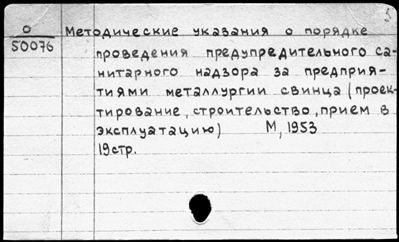 О Методические указания о порядке
50076 проведения предупредительного са-
нитарного надзора за предприя-
тиями металлургии свинца (проек-
тирование, строительство, прием в
эксплуатацию) М, 1953
19стр.